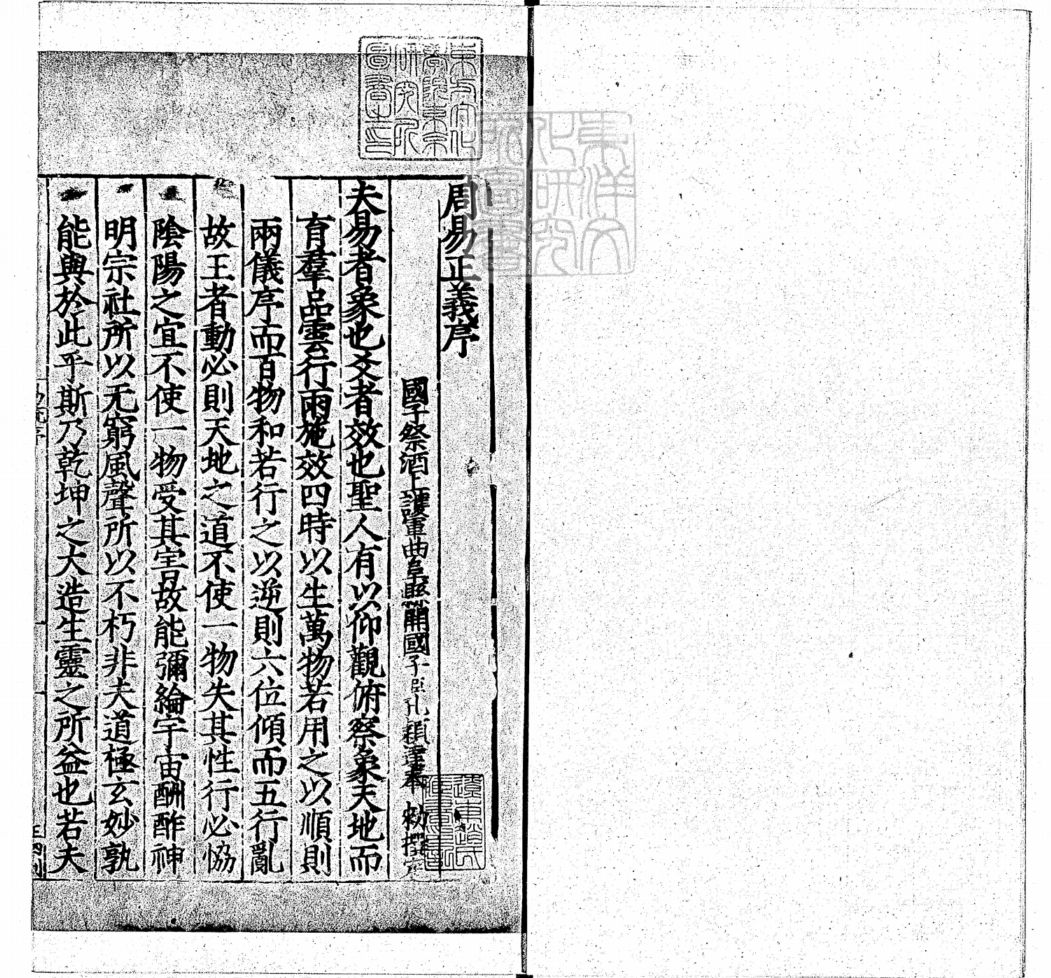 周易正義序
國子祭酒上護軍曲阜縣開國子臣孔穎達奉 勑撰定
夫易者象也爻者效也聖人有以仰觀俯察象天地而
育羣品雲行雨施效四時以生萬物若用之以順則
兩儀序而百物和若行之以逆則六位傾而五行亂
故王者動必則天地之道不使一物失其性行必恊
陰陽之宜不使一物受其害故能彌綸宇宙酬酢神
明宗社所以无窮風聲所以不朽非夫道極玄妙孰
能與於此乎斯乃乾坤之大造生靈之所益也若夫
東方文化學院東京研究所圖書之印
東洋文化研究所圖書